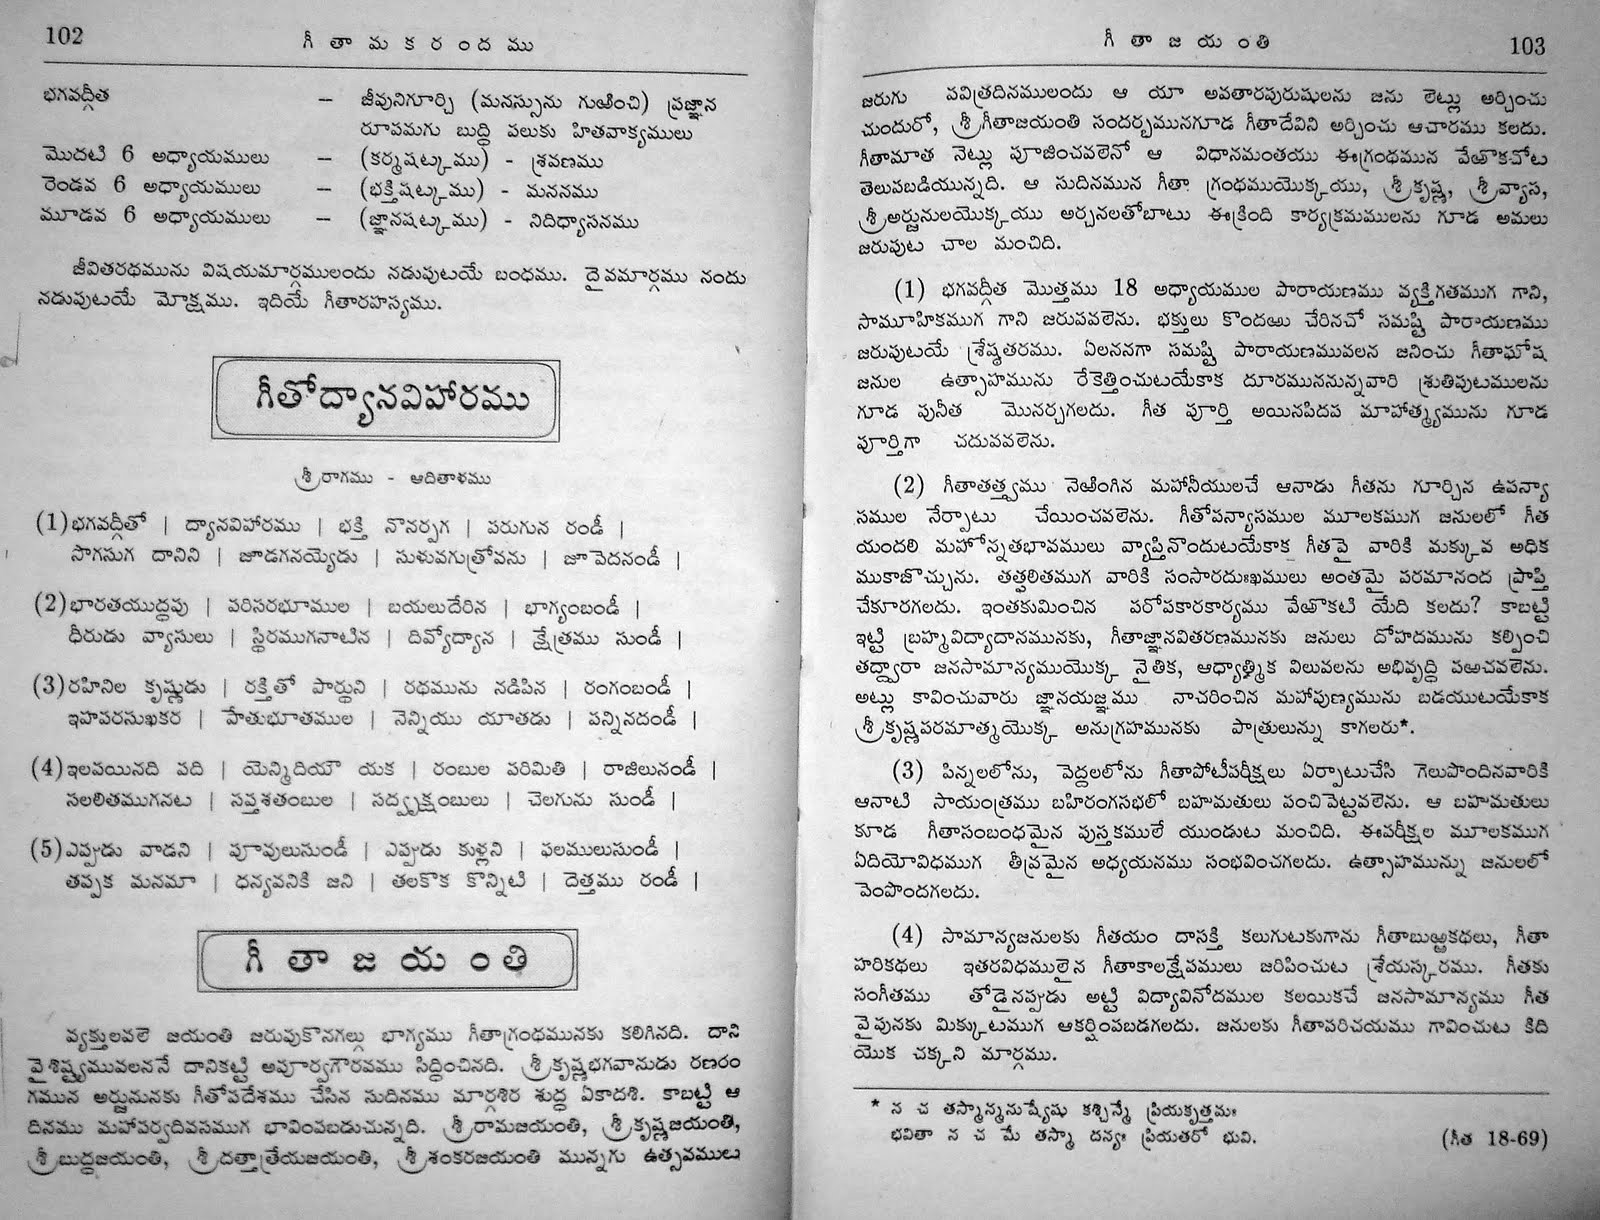 102
గీ తా మ క ర ం ద ము
భగవద్గీత – జీవునిగూర్చి (మనస్సును గుఱించి) ప్రజ్ఞాన
రూపమగు బుద్ధి పలుకు హితవాక్యములు
మొదటి 6 అధ్యాయములు – (కర్మషట్కము) - శ్రవణము
రెండవ 6 అధ్యాయములు – (భక్తిషట్కము) - మననము
మూడవ 6 అధ్యాయములు – (జ్ఞానషట్కము) - నిదిధ్యాసనము
జీవితరథమును విషయమార్గములందు నడుపుటయే బంధము. దైవమార్గము నందు
నడుపుటయే మోక్షము. ఇదియే గీతారహస్యము.
గీతోద్యానవిహారము
శ్రీరాగము - ఆదితాళము
(1) భగవద్గీతో | ద్యానవిహారము | భక్తి నొనర్పగ | పరుగున రండీ |
సొగసుగ దానిని | జూడగనయ్యెడు | సుళువగుత్రోవను | జూపెదనండీ |
(2) భారతయుద్ధపు | పరిసరభూముల | బయలుదేరిన | భాగ్యంబండీ |
ధీరుడు వ్యాసులు | స్థిరముగనాటిన | దివ్యోద్యాన | క్షేత్రము సుండీ |
(3) రహినిల కృష్ణుడు | రక్తితో పార్థుని | రథమును నడిపిన | రంగంబండీ |
ఇహపరసుఖకర | హేతుభూతముల | నెన్నియు యాతడు | పన్నినదండీ |
(4) ఇలవయినది పది | యెన్మిదియౌ యక | రంబుల పరిమితి | రాజిలునండీ |
సలలితముగనట | సప్తశతంబుల | సద్వృక్షంబులు | చెలగును సుండీ |
(5) ఎప్పుడు వాడని | పూవులుసుండీ | ఎప్పుడు కుళ్లని | ఫలములుసుండీ |
తప్పక మనమా | ధన్యవనికి జని | తలకొక కొన్నిటి | దెత్తము రండీ |
గీ తా జ య ం తి
వ్యక్తులవలె జయంతి జరుపుకొనగల్గు భాగ్యము గీతాగ్రంథమునకు కలిగినది. దాని
వైశిష్ట్యమువలననే దానికట్టి అపూర్వగౌరవము సిద్ధించినది. శ్రీకృష్ణభగవానుడు రణరం
గమున అర్జునునకు గీతోపదేశము చేసిన సుదినము మార్గశిర శుద్ధ ఏకాదశి. కాబట్టి ఆ
దినము మహాపర్వదివసముగ భావింపబడుచున్నది. శ్రీరామజయంతి, శ్రీకృష్ణజయంతి,
శ్రీబుద్ధజయంతి, శ్రీదత్తాత్రేయజయంతి, శ్రీశంకరజయంతి మున్నగు ఉత్సవములు
గీ తా జ య ం తి
103
జరుగు పవిత్రదినములందు ఆ యా అవతారపురుషులను జను లెట్లు అర్చించు
చుందురో, శ్రీగీతాజయంతి సందర్భమునగూడ గీతాదేవిని అర్చించు ఆచారము కలదు.
గీతామాత నెట్లు పూజించవలెనో ఆ విధానమంతయు ఈగ్రంథమున వేఱొకచోట
తెలుపబడియున్నది. ఆ సుదినమున గీతా గ్రంథముయొక్కయు, శ్రీకృష్ణ, శ్రీవ్యాస,
శ్రీఅర్జునులయొక్కయు అర్చనలతోబాటు ఈక్రింది కార్యక్రమములను గూడ అమలు
జరుపుట చాల మంచిది.
(1) భగవద్గీత మొత్తము 18 అధ్యాయముల పారాయణము వ్యక్తిగతముగ గాని,
సామూహికముగ గాని జరుపవలెను. భక్తులు కొందఱు చేరినచో సమష్టి పారాయణము
జరుపుటయే శ్రేష్ఠతరము. ఏలననగా సమష్టి పారాయణమువలన జనించు గీతాఘోష
జనుల ఉత్సాహమును రేకెత్తించుటయేకాక దూరముననున్నవారి శ్రుతిపుటములను
గూడ పునీత మొనర్చగలదు. గీత పూర్తి అయినపిదప మాహాత్మ్యమును గూడ
పూర్తిగా చదువవలెను.
(2) గీతాతత్త్వము నెఱింగిన మహనీయులచే ఆనాడు గీతను గూర్చిన ఉపన్యా
సముల నేర్పాటు చేయించవలెను. గీతోపన్యాసముల మూలకముగ జనులలో గీత
యందలి మహోన్నతభావములు వ్యాప్తినొందుటయేకాక గీతపై వారికి మక్కువ అధిక
ముకాజొచ్చును. తత్ఫలితముగ వారికి సంసారదుఃఖములు అంతమై పరమానంద ప్రాప్తి
చేకూరగలదు. ఇంతకుమించిన పరోపకారకార్యము వేఱొకటి యేది కలదు? కాబట్టి
ఇట్టి బ్రహ్మవిద్యాదానమునకు, గీతాజ్ఞానవితరణమునకు జనులు దోహదమును కల్పించి
తద్ద్వారా జనసామాన్యముయొక్క నైతిక, ఆధ్యాత్మిక విలువలను అభివృద్ధి పఱచవలెను.
అట్లు కావించువారు జ్ఞానయజ్ఞము నాచరించిన మహాపుణ్యమును బడయుటయేకాక
శ్రీకృష్ణపరమాత్మయొక్క అనుగ్రహమునకు పాత్రులున్ను కాగలరు*.
(3) పిన్నలలోను, పెద్దలలోను గీతాపోటీపరీక్షలు ఏర్పాటుచేసి గెలుపొందినవారికి
ఆనాటి సాయంత్రము బహిరంగసభలో బహుమతులు పంచిపెట్టవలెను. ఆ బహుమతులు
కూడ గీతాసంబంధమైన పుస్తకములే యుండుట మంచిది. ఈపరీక్షల మూలకముగ
ఏదియోవిధముగ తీవ్రమైన అధ్యయనము సంభవించగలదు. ఉత్సాహమున్ను జనులలో
పెంపొందగలదు.
(4) సామాన్యజనులకు గీతయం దాసక్తి కలుగుటకుగాను గీతాబుఱ్ఱకథలు, గీతా
హరికథలు ఇతరవిధములైన గీతాకాలక్షేపములు జరిపించుట శ్రేయస్కరము. గీతకు
సంగీతము తోడైనప్పుడు అట్టి విద్యావినోదముల కలయికచే జనసామాన్యము గీత
వైపునకు మిక్కుటముగ ఆకర్షింపబడగలదు. జనులకు గీతాపరిచయము గావించుట కిది
యొక చక్కని మార్గము.
* న చ తస్మాన్మనుష్యేషు కశ్చిన్మే ప్రియకృత్తమః
భవితా న చ మే తస్మా దన్యః ప్రియతరో భువి. (గీత 18-69)